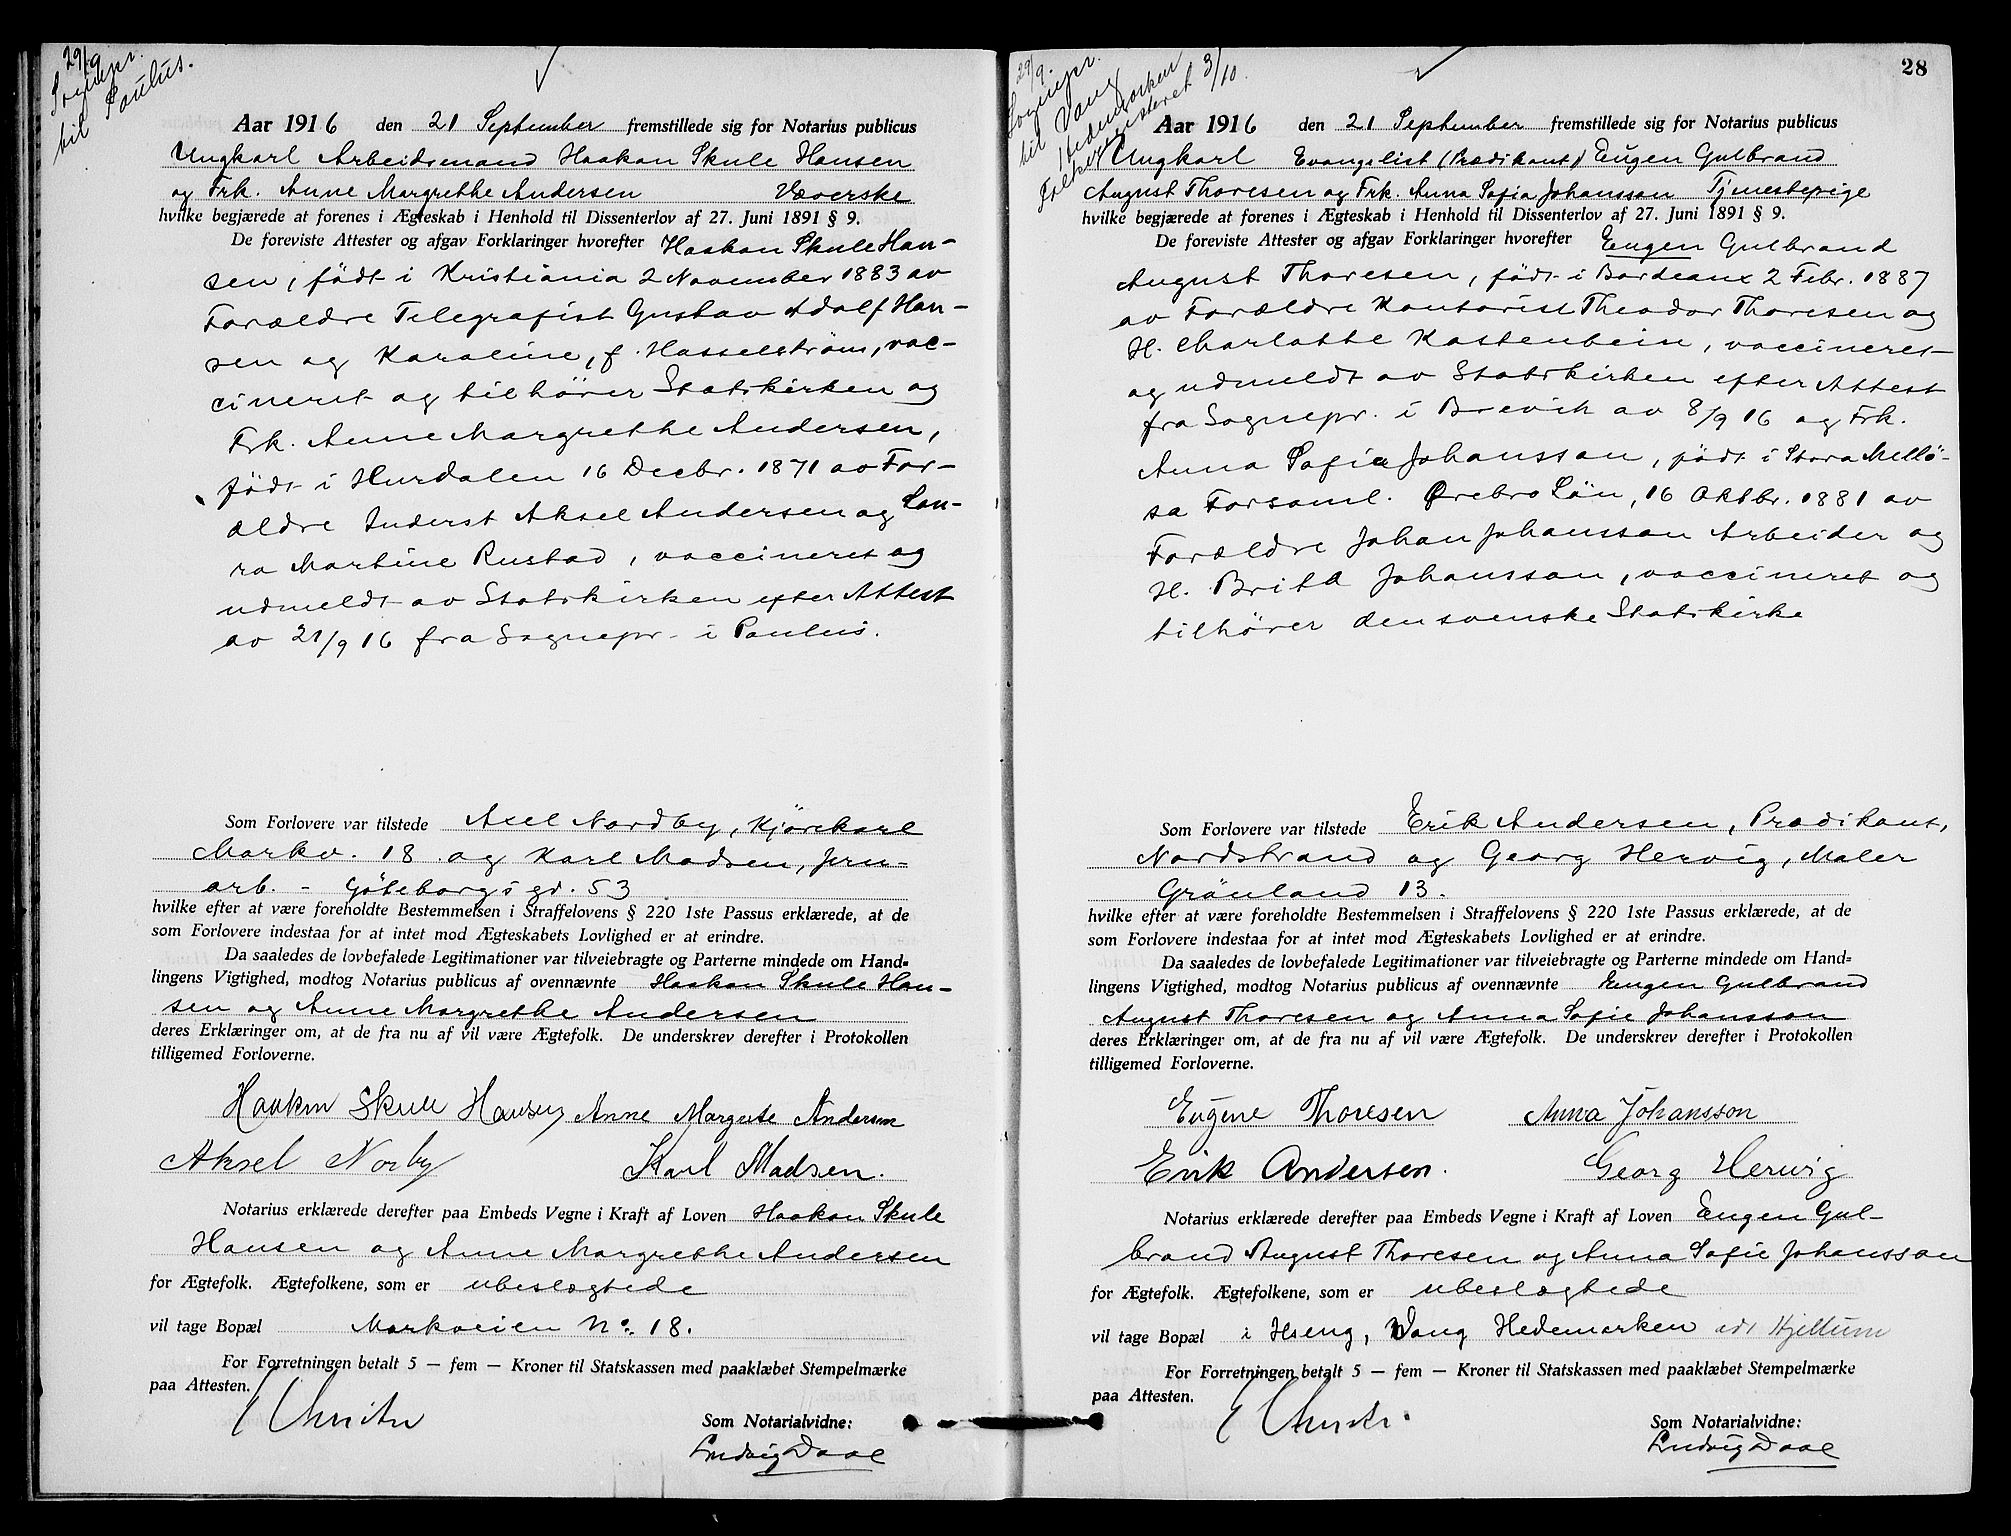 29/9
Sognepr.
til Paulus.
Aar 1916 den 21 September fremstillede sig for Notarius publicus
Ungkarl Arbeidsmand Haakon Skule Hansen
og Frk. Anne Margrethe Andersen Væverske
hvilke begjærede at forenes i Ægteskab i Henhold til Dissenterlov af 27. Juni 1891 § 9.
De foreviste Attester og afgav Forklaringer hvorefter Haakon Skule Han-
sen, født i Kristiania 2 November 1883 av
Forældre Telegrafist Gustav Adolf Han-
sen og Karoline, f. Hasselström, vac-
cineret og tilhører Statskirken og
Frk. Anne Margrethe Andersen,
født i Hurdalen 16 Decbr. 1871 av For-
ældre Inderst Aksel Andersen og Lau-
ra Martine Rustad, vaccineret og
udmeldt av Statskirken efter Attest
av 21/9 16 fra Sognepr. i Paulus.
Som Forlovere var tilstede Axel Nordby, Kjørekarl
Markv. 18 og Karl Madsen, jern-
arb. - Göteborgsgd. 53
hvilke efter at være foreholdte Bestemmelsen i Straffelovens § 220 1ste Passus erklærede, at de
som Forlovere indestaa for at intet mod Ægteskabets Lovlighed er at erindre.
Da saaledes de lovbefalede Legitimationer var tilveiebragte og Parterne mindede om Hand-
lingens Vigtighed, modtog Notarius publicus af ovennævnte Haakon Skule Han-
sen og Anne Margrethe Andersen
deres Erklæringer om, at de fra nu af vil være Ægtefolk. De underskrev derefter i Protokollen
tilligemed Forloverne.
Haakon Skule Hansen Anne Margrete Andersen
Aksel Norby Karl Madsen.
Notarius erklærede derefter paa Embeds Vegne i Kraft af Loven Haakon Skule
Hansen og Anne Margrethe Andersen
for Ægtefolk. Ægtefolkene, som er ubeslægtede
vil tage Bopæl Markveien No. 18.
For Forretningen betalt 5 — fem — Kroner til Statskassen med paaklæbet Stempelmærke
paa Attesten.
Som Notarialvidne:
Ludvig Daae
28
29/9.
Sognepr.
til Vang
Hedemarken
Folkeregisteret 3/10.
Aar 1916 den 21 September fremstillede sig for Notarius publicus
Ungkarl Evangelist (Prædikant) Eugen Gulbrand
August Thoresen og Frk. Anna Sofia Johansson Tjenestepige
hvilke begjærede at forenes i Ægteskab i Henhold til Dissenterlov af 27. Juni 1891 § 9.
De foreviste Attester og afgav Forklaringer hvorefter Eugen Gulbrand
August Thoresen, født i Bordeaux 2 Febr. 1887
av Forældre Kontorist Theodor Thoresen og
H. Charlotte Kastenbein, vaccineret
og udmeldt av Statskirken efter Attest
fra Sognepr. i Brevik av 8/9 16 og Frk.
Anna Sofia Johansson, født i Stora Mellö-
sa Forsaml. Ørebro Län, 16 Oktbr. 1881 av
Forældre Johan Johansson Arbeider og
H. Britta Johansson, vaccineret og
tilhører den svenske Statskirke
Som Forlovere var tilstede Erik Andersen, Prædikant,
Nordstrand og Georg Hervig, Maler
Grönland 13.
hvilke efter at være foreholdte Bestemmelsen i Straffelovens § 220 1ste Passus erklærede, at de
som Forlovere indestaa for at intet mod Ægteskabets Lovlighed er at erindre.
Da saaledes de lovbefalede Legitimationer var tilveiebragte og Parterne mindede om Hand-
lingens Vigtighed, modtog Notarius publicus af ovennævnte Eugen Gulbrand
August Thoresen og Anna Sofie Johansson
deres Erklæringer om, at de fra nu af vil være Ægtefolk. De underskrev derefter i Protokollen
tilligemed Forloverne.
Eugene Thoresen Anna Johansson
Erik Andersen. Georg Herwig
Notarius erklærede derefter paa Embeds Vegne i Kraft af Loven Eugen Gul-
brand August Thoresen og Anna Sofie Johansson
for Ægtefolk. Ægtefolkene, som er ubeslægtede
vil tage Bopæl i Hseng, Vang Hedemarken
For Forretningen betalt 5 — fem — Kroner til Statskassen med paaklæbet Stempelmærke
paa Attesten.
Som Notarialvidne:
Ludvig Daae